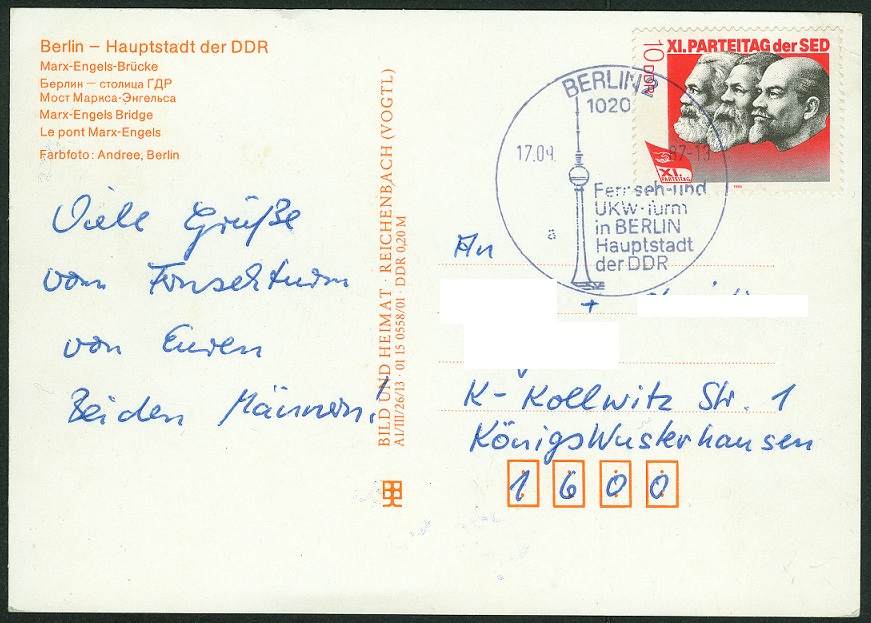 Berlin – Hauptstadt der DDR
Marx-Engels-Brücke
Берлин — столица ГДР
Мост Маркса-Энгельса
Marx-Engels Bridge
Le pont Marx-Engels
Farbfoto: Andree, Berlin
Viele Grüße
vom Fernsehturm
von Euren
Beiden Männern!
BILD UND HEIMAT · REICHENBACH (VOGTL)
A1/III/26/13 · 01 15 0558/01 · DDR 0,20 M
XI. PARTEITAG der SED
10 DDR
XI.
PARTEITAG
BERLIN 2
1020
17.09. 87-13
Fernseh-und
UKW-Turm
in BERLIN
Hauptstadt
der DDR
a
An
+
K-Kollwitz Str. 1
Königs Wusterhausen
1600